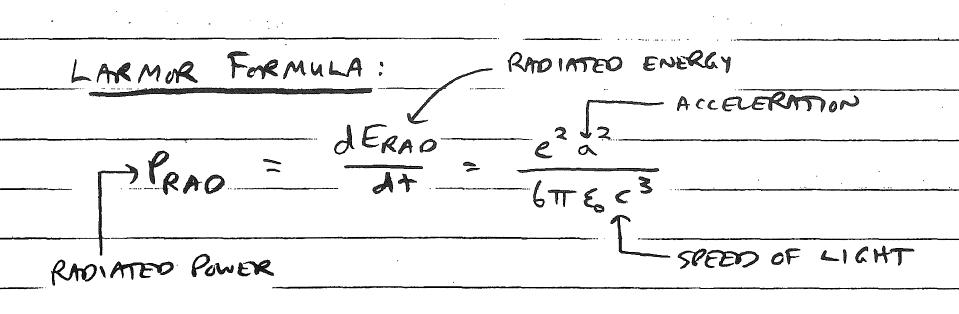 LARMOR FORMULA:
RADIATED ENERGY
ACCELERATION
P_RAD = dE_RAD/dt = e²a²/6πε₀c³
RADIATED POWER
SPEED OF LIGHT